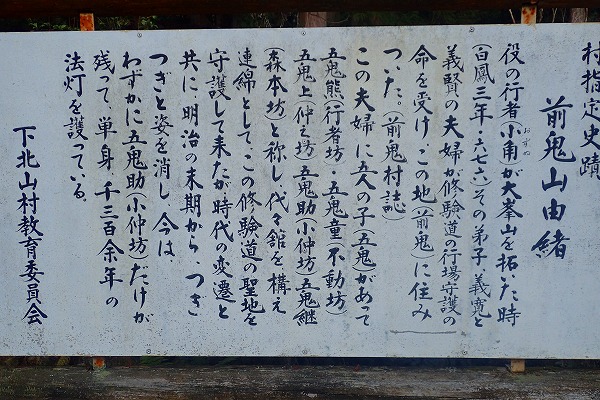 村指定史蹟
前鬼山由緒
役の行者(小角)が大峯山を拓いた時
おずぬ
(白鳳三年・六七六)その弟子、義寛と
義賢の夫婦が修験道の行場守護の
命を受け、この地(前鬼)に住み
ついた。(前鬼村誌)
この夫婦に五人の子(五鬼)があって
五鬼熊(行者坊)・五鬼童(不動坊)
五鬼上(仲之坊)五鬼助(小仲坊)五鬼継
(森本坊)と称し、代々舘を構え
連綿として、この修験道の聖地を
守護して来たが時代の変遷と
共に、明治の末期から、つぎ
つぎと姿を消し、今は、
わずかに五鬼助(小仲坊)だけが
残って、単身、千三百余年の
法灯を護っている。
下北山村教育委員会